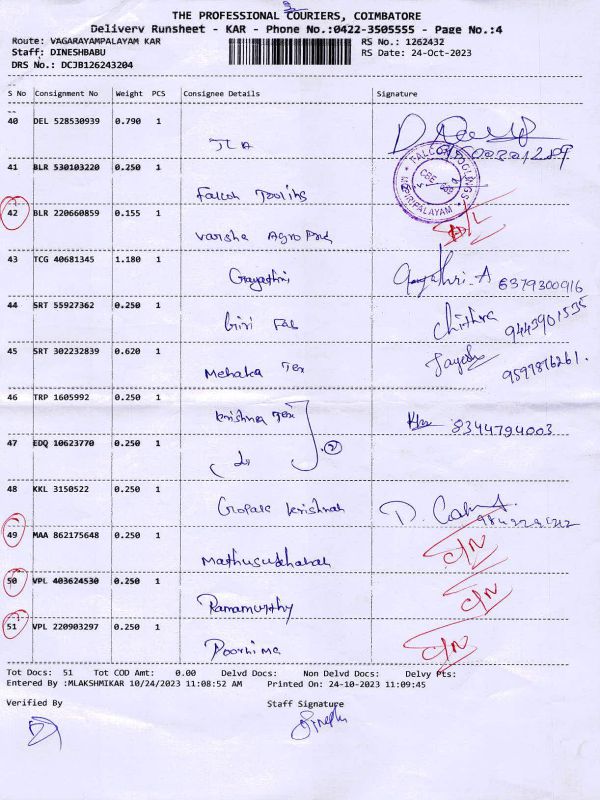 THE PROFESSIONAL COURIERS, COIMBATORE
Delivery Runsheet - KAR - Phone No.:0422-3505555 - Page No.:4
Route: VAGARAYAMPALAYAM KAR RS No.: 1262432
Staff: DINESHBABU RS Date: 24-Oct-2023
DRS No.: DCJB126243204
S No Consignment No Weight PCS Consignee Details Signature
40 DEL 528530939 0.790 1
41 BLR 530103220 0.250 1
FALCON TOOLINGS
Falcon Tooling
42 BLR 220660859 0.155 1
Varsha Agro Prd
43 TCG 40681345 1.180 1
Gayathri Gayathri.A 6379300916
44 SRT 55927362 0.250 1
Giri Fab Chithra 9443901535
45 SRT 302232839 0.620 1
Mehaka Tex 9597876261.
46 TRP 1605992 0.250 1
Krishna Tex 8344794003
47 EDQ 10623770 0.250 1
2
48 KKL 3150522 0.250 1
Gopala Krishnan
49 MAA 862175648 0.250 1
C/N
50 VPL 403624530 0.250 1
Ramamurthy C/N
51 VPL 220903297 0.250 1
Poornima C/N
Tot Docs: 51 Tot COD Amt: 0.00 Delvd Docs: Non Delvd Docs: Delvy Pts:
Entered By :MLAKSHMIKAR 10/24/2023 11:08:52 AM Printed On: 24-10-2023 11:09:45
Verified By Staff Signature